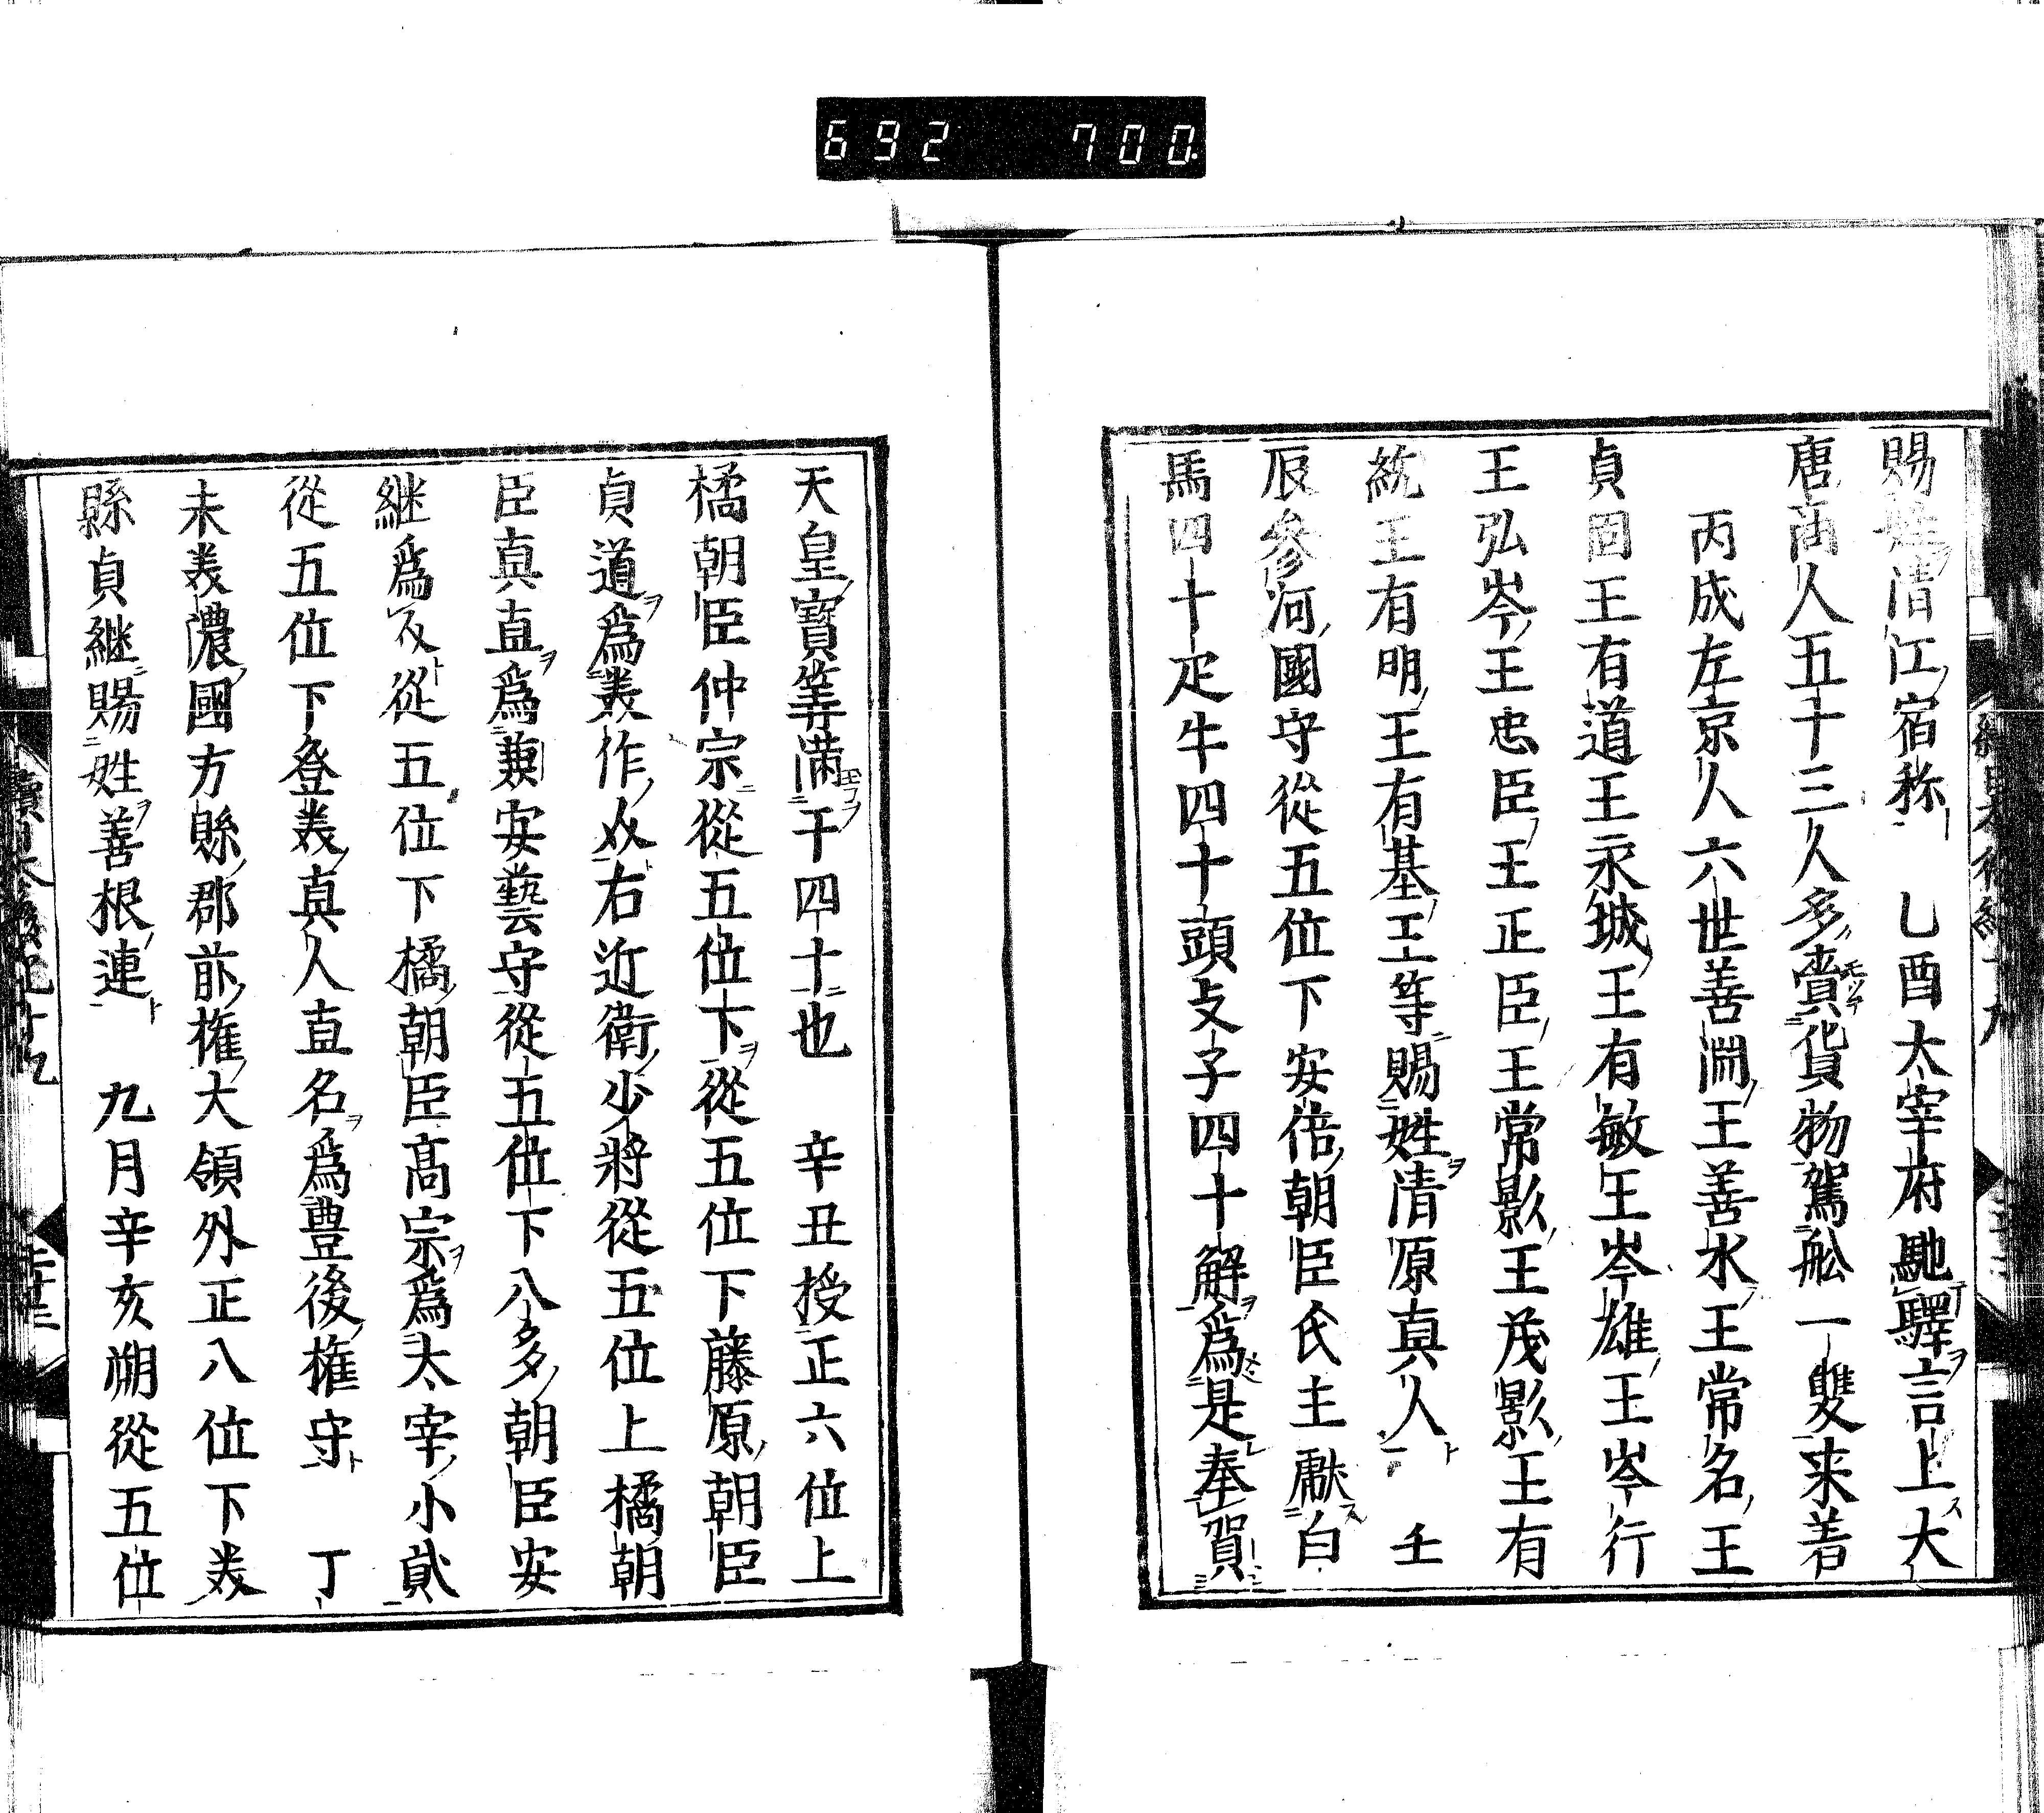 692 700
賜姓清江宿祢 乙酉太宰府馳驛言上大
唐商人五十三人多賷貨物駕舩一雙来着
丙戍左京人六世善淵王善水王常名王
貞固王有道王永城王有敏王岑雄王岑行
王弘岑王忠臣王正臣王常影王茂影王有
統王有明王有基王等賜姓清原真人 壬
辰參河國守從五位下安倍朝臣氏主獻白
馬四十疋牛四十頭㺃子四十解爲是奉賀
天皇寳筭満于四十也 辛丑授正六位上
橘朝臣仲宗從五位下從五位下藤原朝臣
貞道爲羙作㸚右近衛少將從五位上橘朝
臣真直爲兼安藝守從五位下八多朝臣安
継爲㸚從五位下橘朝臣髙宗爲太宰小貳
從五位下登羙真人直名爲豊後權守 丁
未羙濃國方縣郡前權大領外正八位下羙
縣貞継賜姓善根連 九月辛亥朔從五位